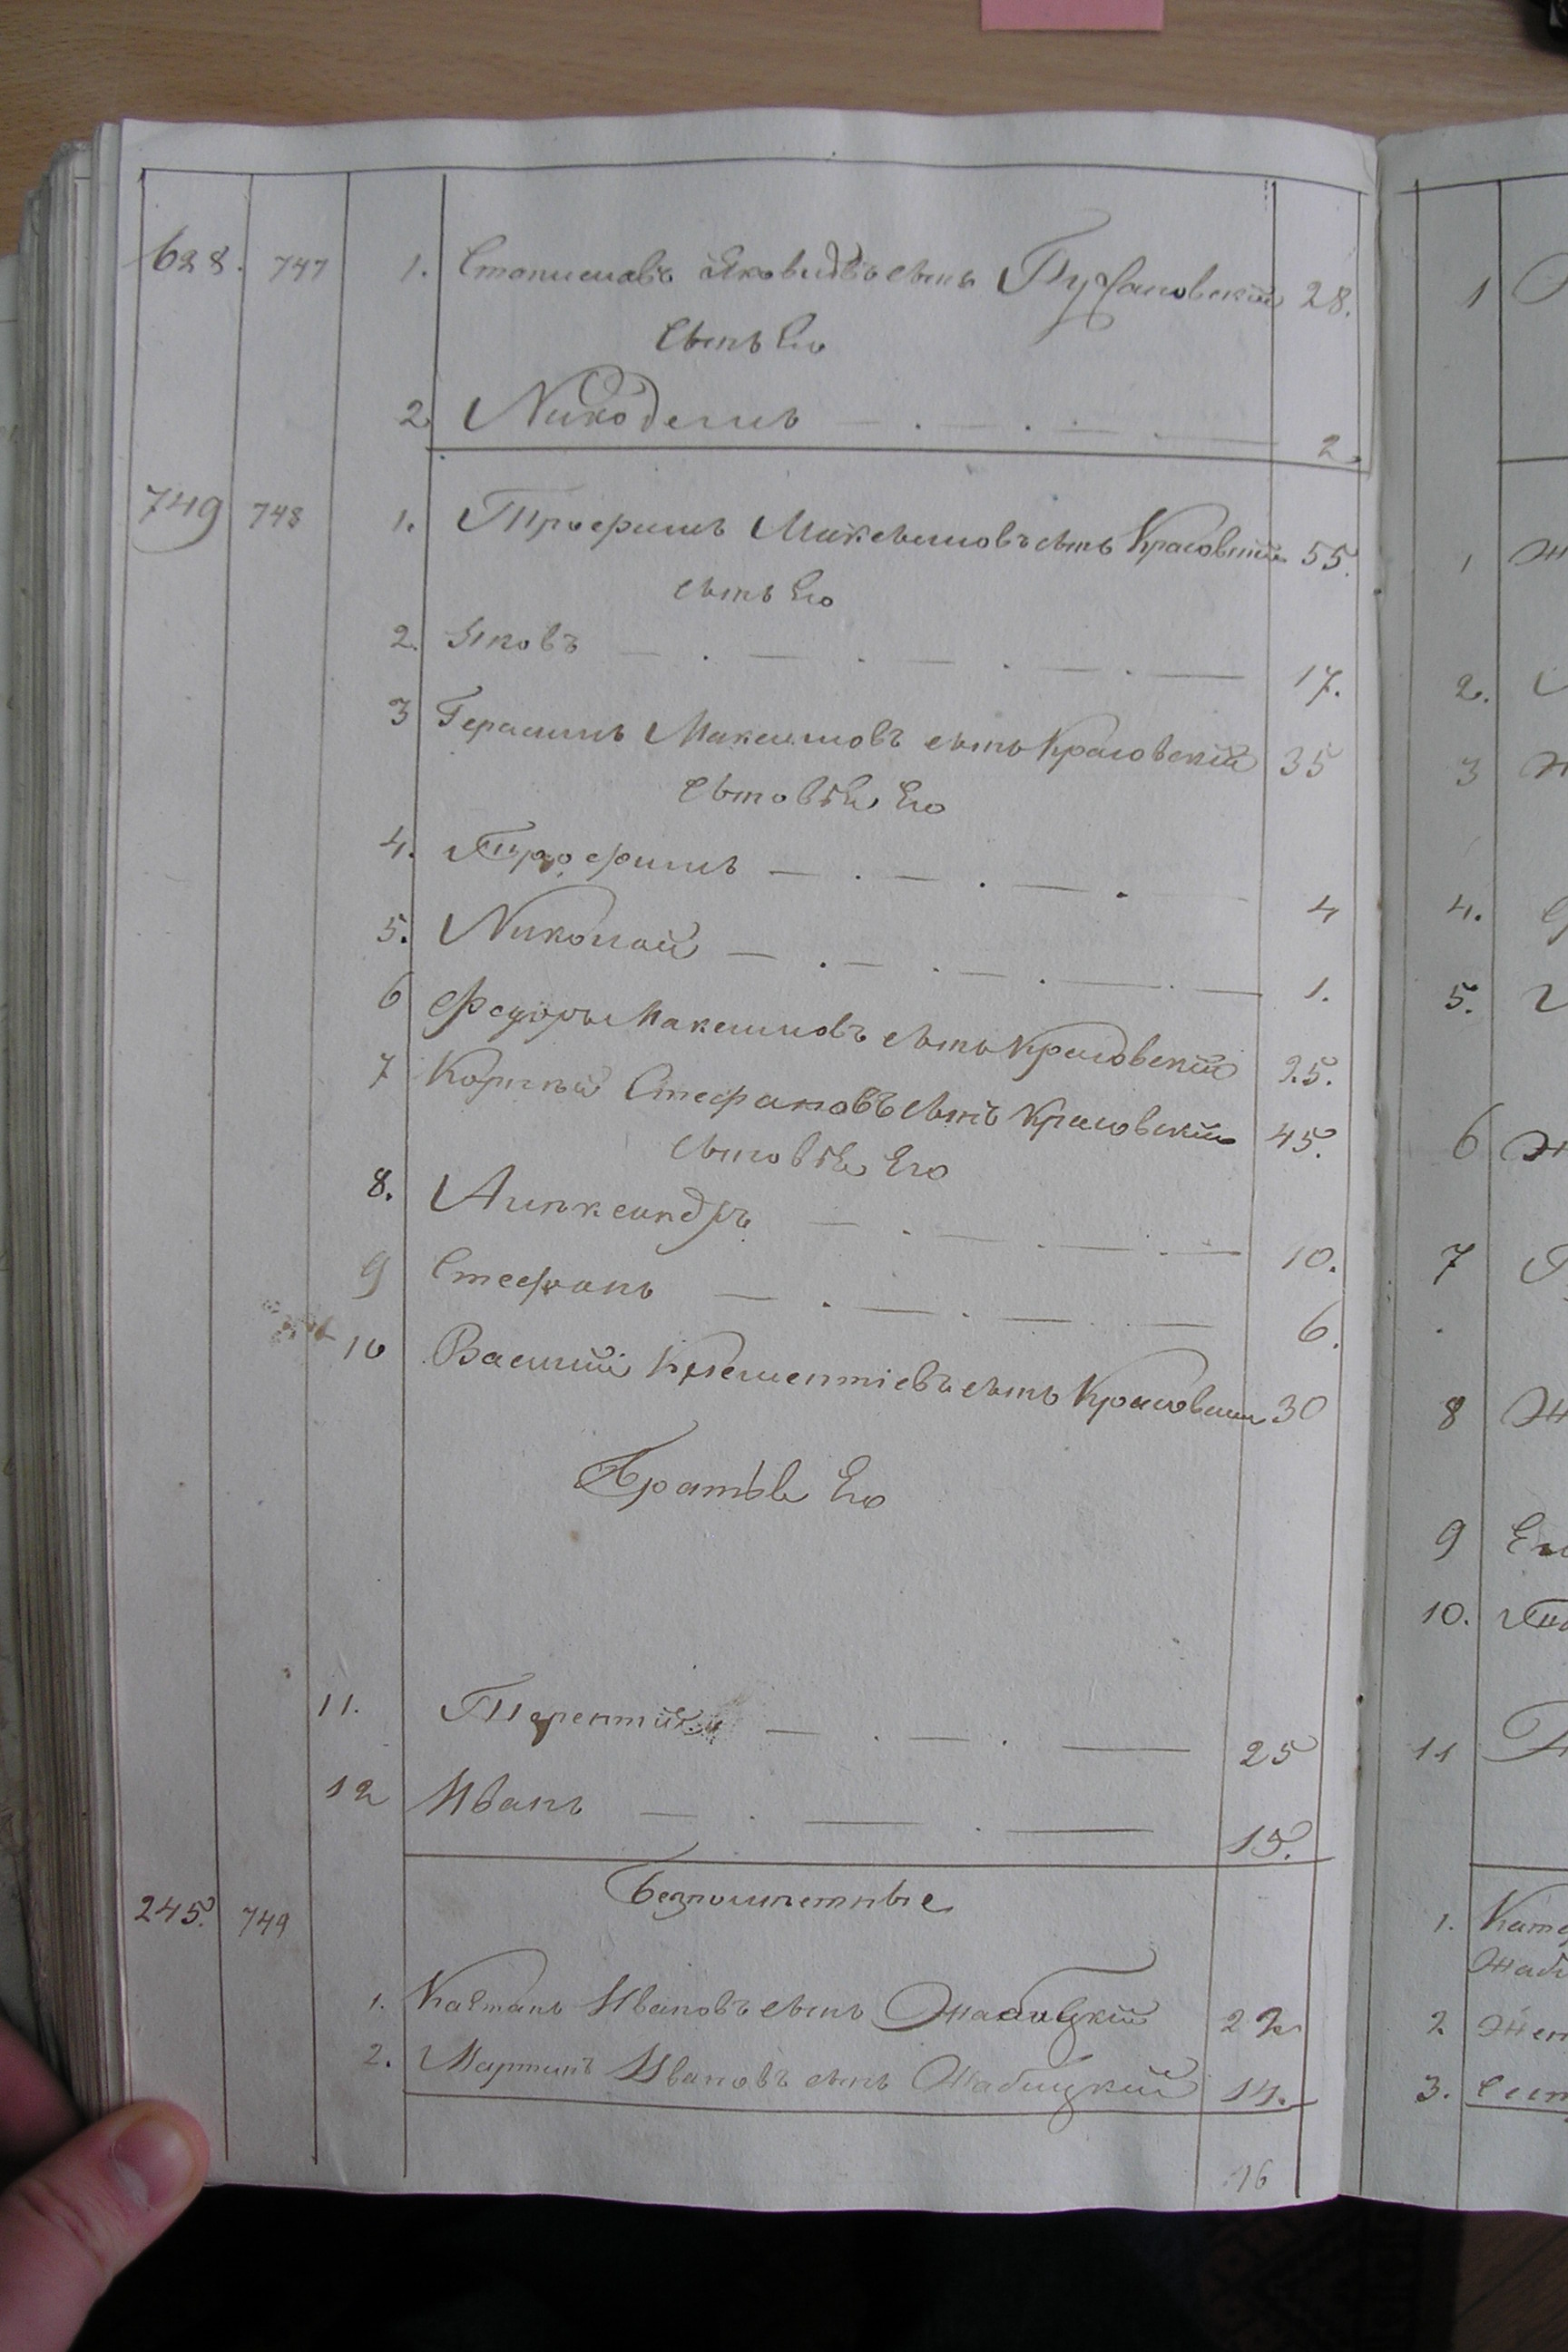 628. 747 1. Станиславъ Яковлевъ сынъ 28.
сынъ Его
2 Никодемъ — . — . — . — 2.
749 748 1. Трофимъ Максимовъ сынъ Красовскій 55.
сынъ Его
2. Яковъ — . — . — . — . — 17.
3 Герасимъ Максимовъ сынъ Красовскій 35
сыновья Его
4. Трофимъ — . — . — . — 4
5. Николай — . — . — . — . — 1.
6 Федоръ Максимовъ сынъ Красовскій 25.
7 Корнѣй Стефановъ сынъ Красовскій 45.
сыновья Его
8. Александръ — . — . — . — 10.
9 Стефанъ — . — . — . — 6.
10 Василий Клементіевъ сынъ Красовскій 30
Братья Его
11. Терентий — . — . — 25
12 Иванъ — . — . — 15.
245. 749 безпоместные
1. Каетанъ Ивановъ сынъ Жабицкій 22
2. Мартинъ Ивановъ сынъ Жабицкій 14.
16
1
1
2.
3
4.
5.
6
7
8
9
10.
11
1.
2
3.